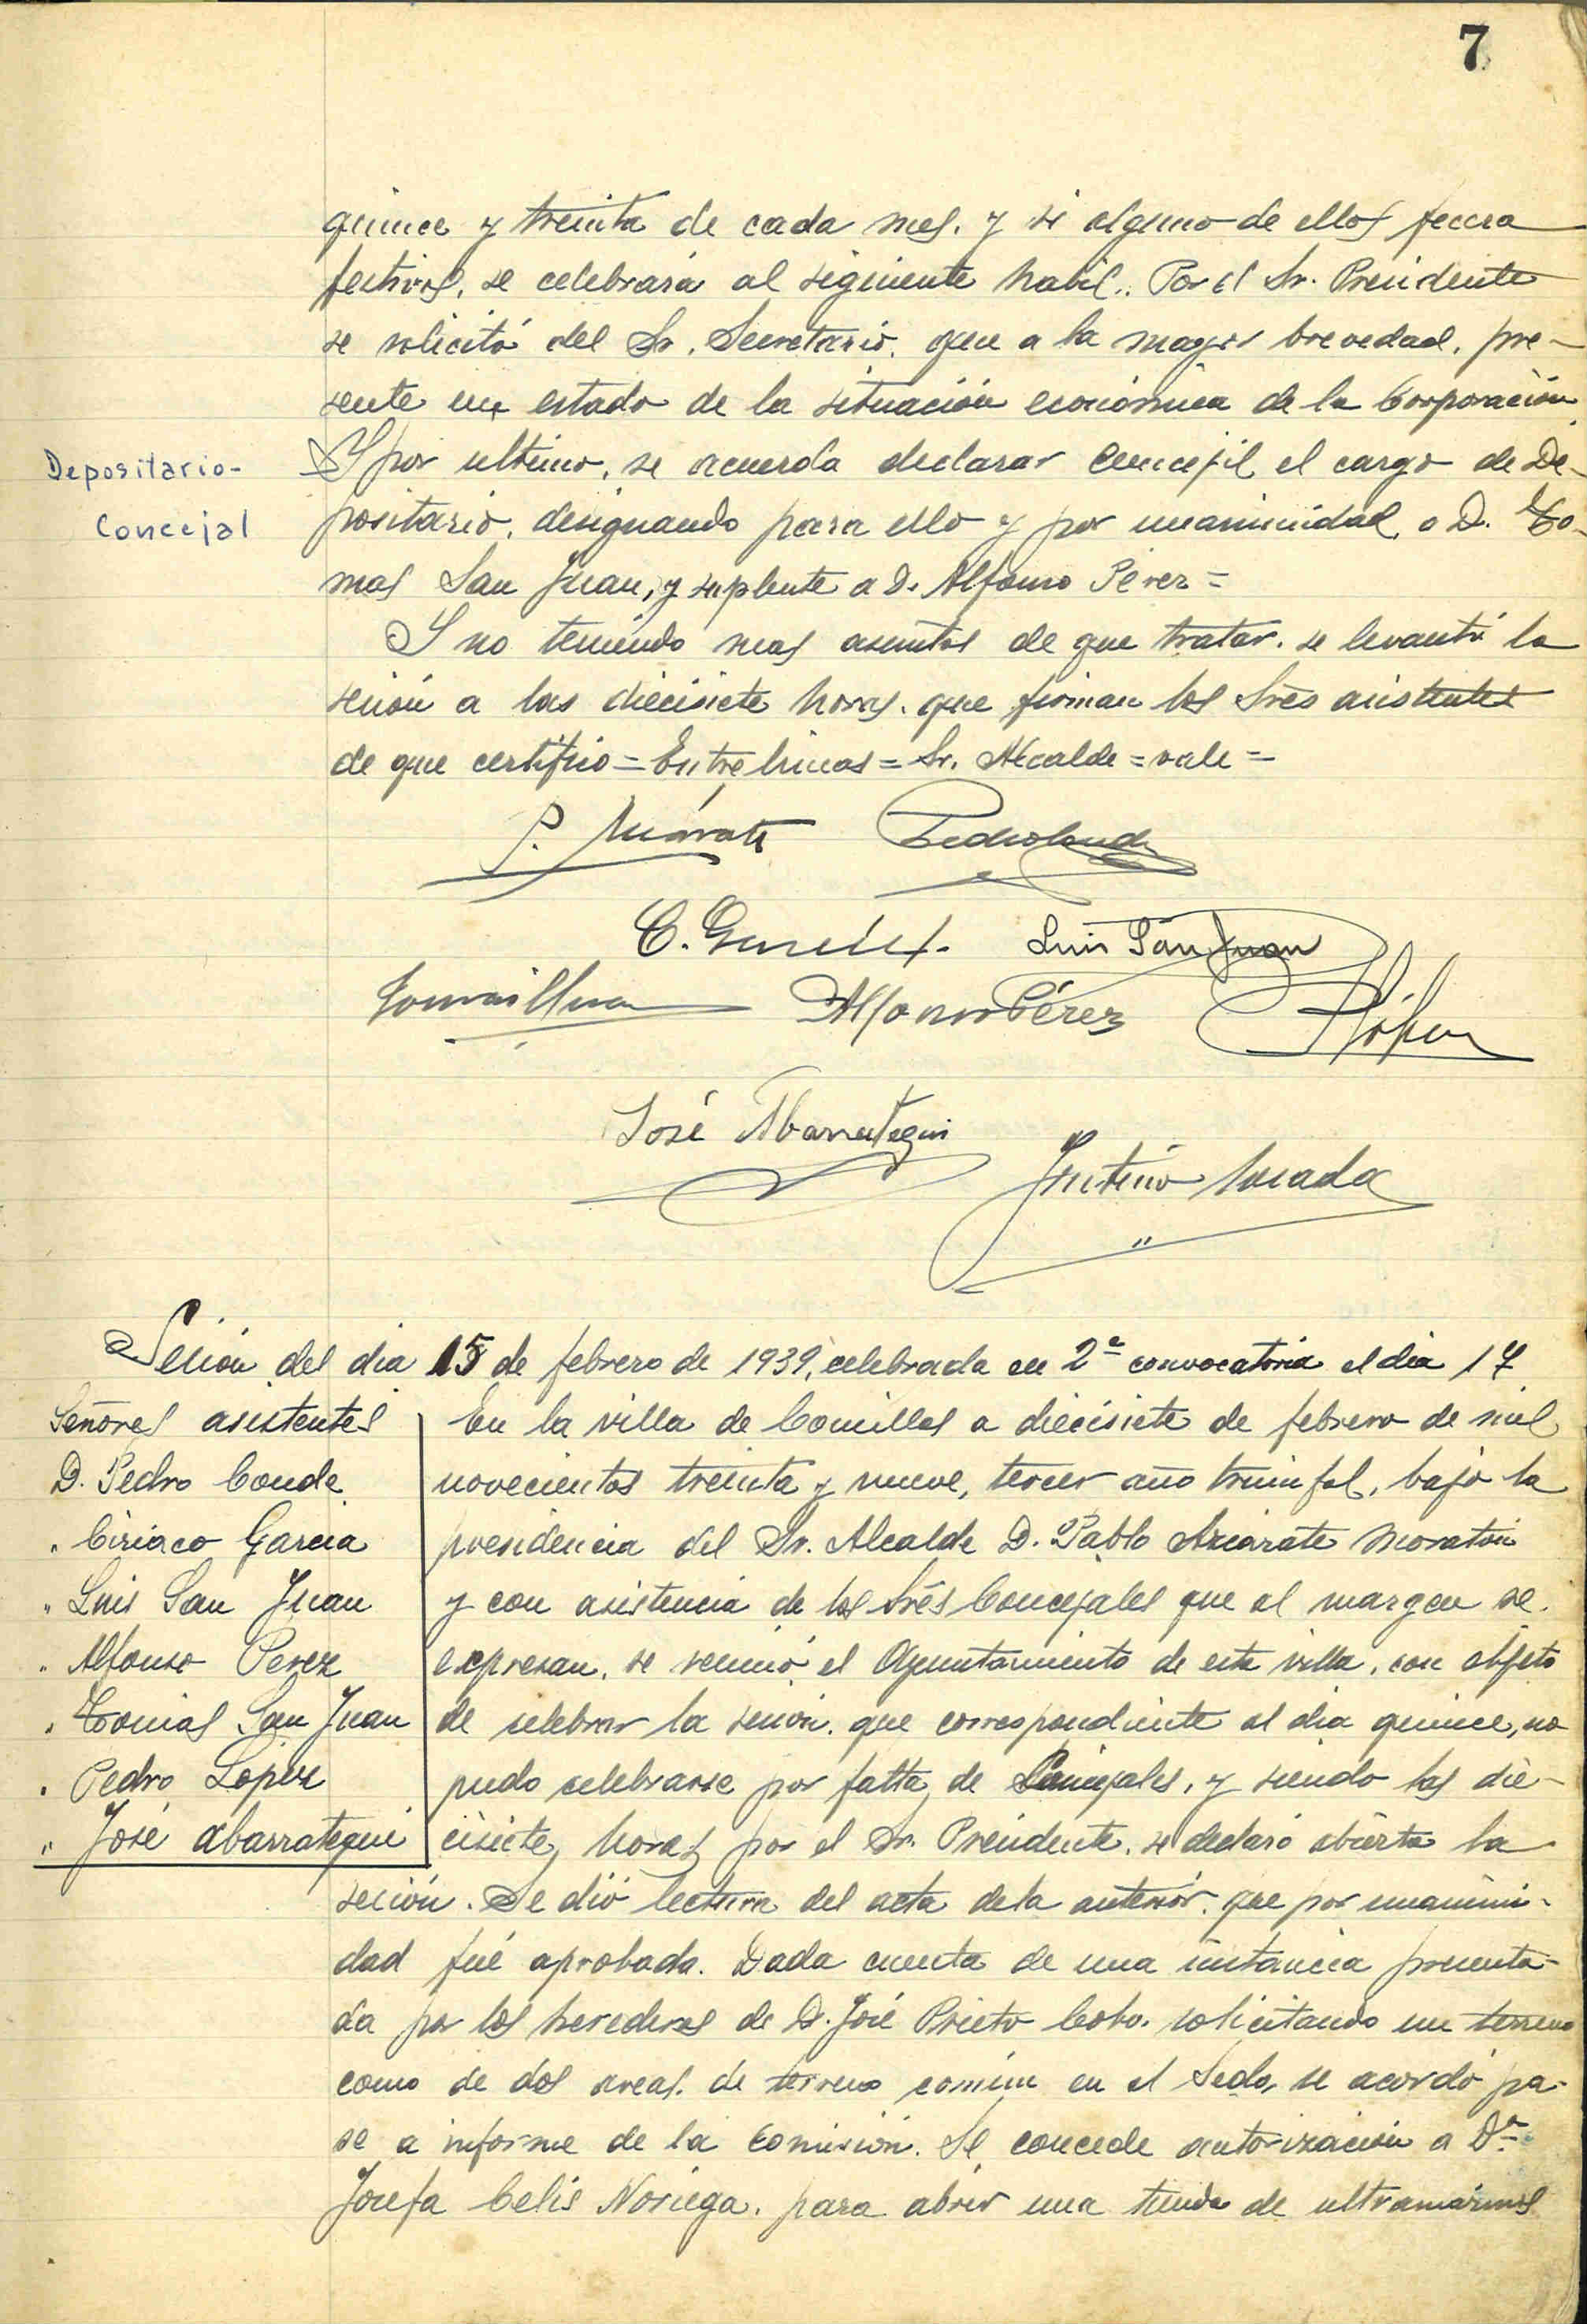 7
quince y treinta de cada mes. y si alguno de ellos fuera
festivos, se celebrará al siguiente habil. Por el Sr. Presidente
se solicitó del Sr. Secretario, que a la mayor brevedad, pre-
sente un estado de la situación económica de la Corporación.
Depositario-
Concejal
Y por ultimo, se acuerda declarar concejil el cargo de De-
positario, designando para ello y por unanimidad, a D. To-
mas San Juan, y suplente a D. Alfonso Pérez =
Y no teniendo mas asuntos de que tratar, se levantó la
sesión a las diecisiete horas, que firman los Sres asistentes
de que certifico = Entre lineas = Sr. Alcalde = vale =
P. Azcárate Pedro Conde
C. García Luis San Juan
Alfonso Pérez
José Abarrategui
Sesión del dia 15 de febrero de 1939, celebrada en 2ª convocatoria el dia 17
Señores asistentes
D. Pedro Conde
" Ciriaco Garcia
" Luis San Juan
" Alfonso Perez
" Tomas San Juan
" Pedro Lopez
" José Abarrategui
En la villa de Comillas a diecisiete de febrero de mil
novecientos treinta y nueve, tercer año triunfal, bajo la
presidencia del Sr. Alcalde D. Pablo Azcárate Moratón
y con asistencia de los Srés Concejales que al margen se
expresan, se reunió el Ayuntamiento de esta villa, con objeto
de celebrar la sesión, que correspondiente al dia quince, no
pudo celebrarse por falta de Concejales, y siendo las die-
cisiete, horas, por el Sr. Presidente, se declaró abierta la
sesión. Se dió lectura del acta de la anterior, que por unanimi-
dad fué aprobada. Dada cuenta de una instancia presenta-
da por los herederos de D. José Prieto Cobo, solicitando un terreno
como de dos areas, de terreno común en el Sedo, se acordó pa-
se a informe de la comisión. Se concede autorización a Dª
Josefa Celis Noriega, para abrir una tienda de ultramarinos